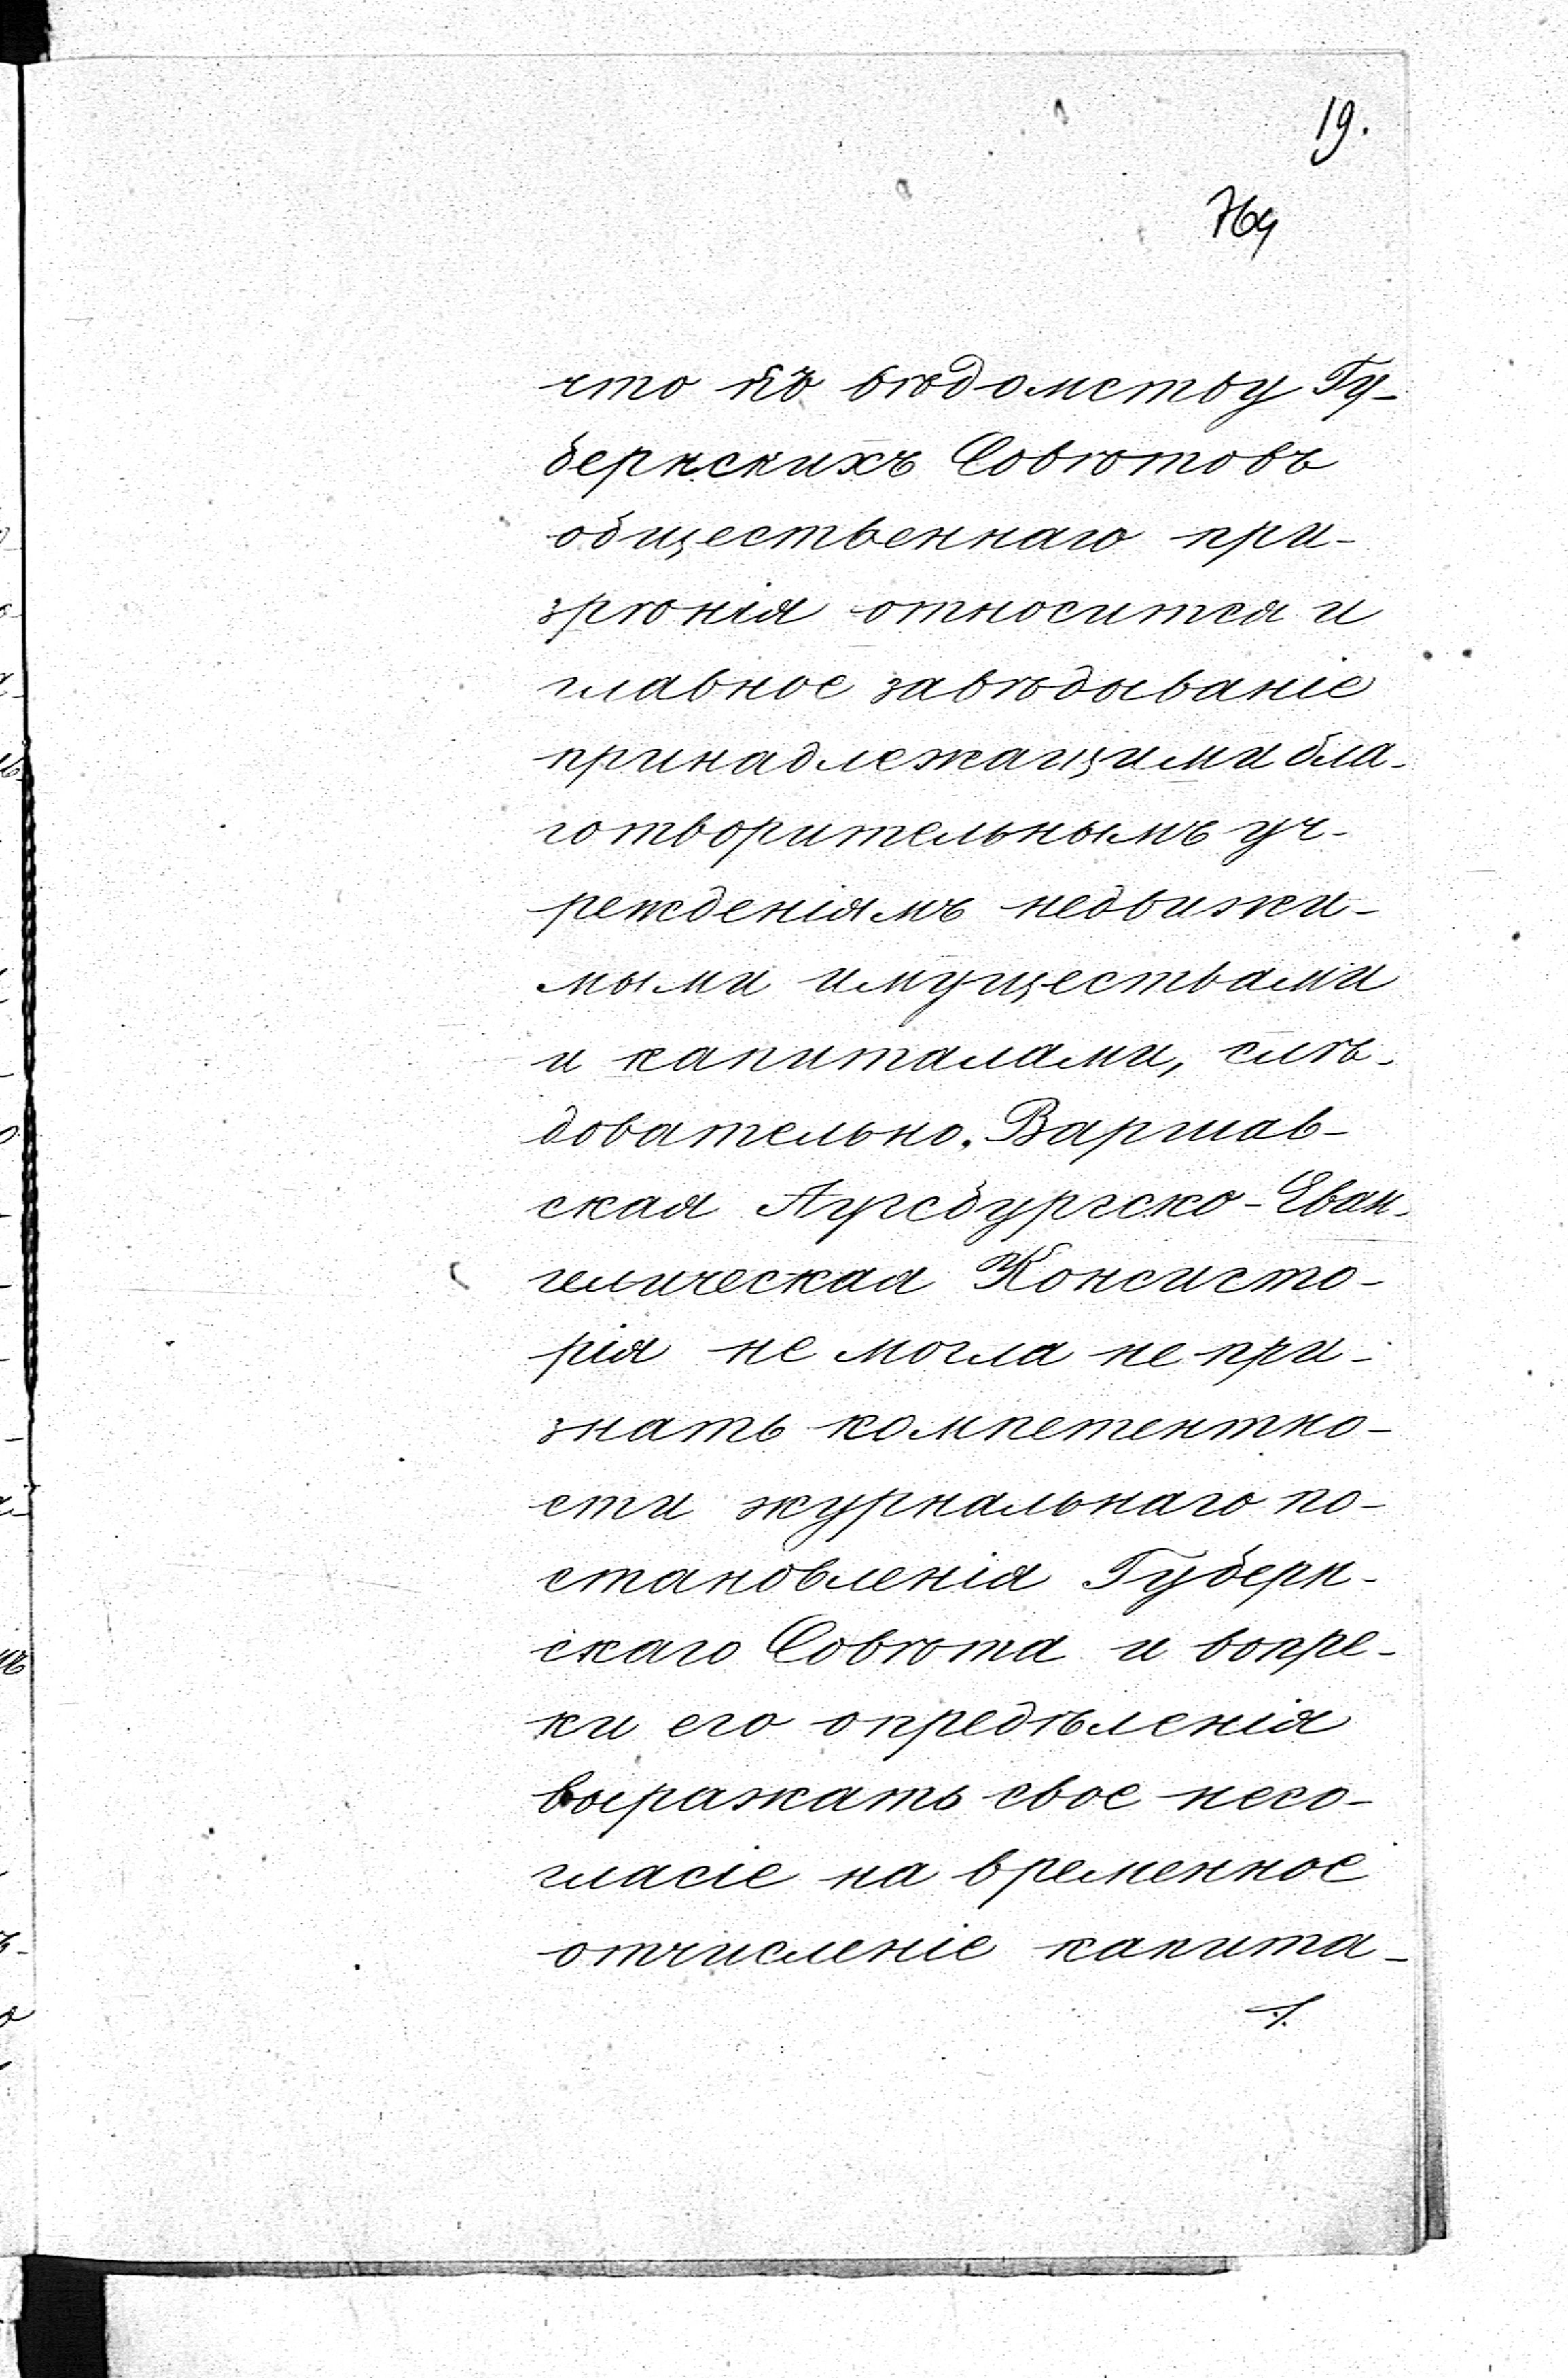 19.
764
что къ вѣдомству Гу-
бернскихъ Совѣтовъ
общественнаго при-
зрѣнія относится и
главное завѣдываніе
принадлежащими бла-
готворительнымъ уч-
режденіямъ недвижи-
мыми имуществами
и капиталами, слѣ-
довательно. Варшав-
ская Аугсбургско-Еван-
гелическая Консисто-
рія не могла не при-
знать компетентно-
сти журнальнаго по-
становленія Губерн-
скаго Совѣта и вопре-
ки его опредѣленія
выражать свое несо-
гласіе на временное
отчисленіе капита-